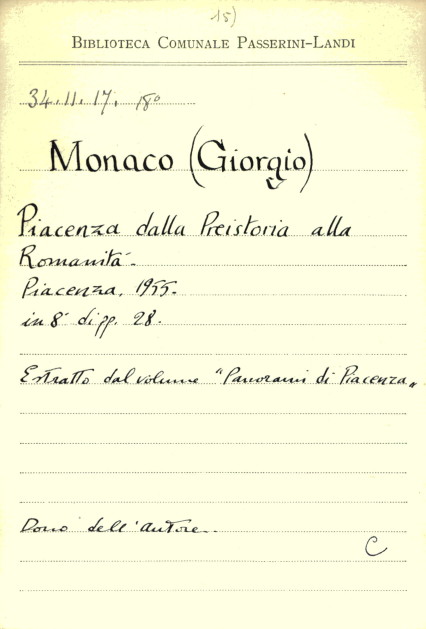 15)
BIBLIOTECA COMUNALE PASSERINI-LANDI
34.11.17. 18°
Monaco (Giorgio)
Piacenza dalla Preistoria alla
Romanità.
Piacenza, 1955.
in 8° di pp. 28.
Estratto dal volume "Panorami di Piacenza"
Dono dell'autore.
C